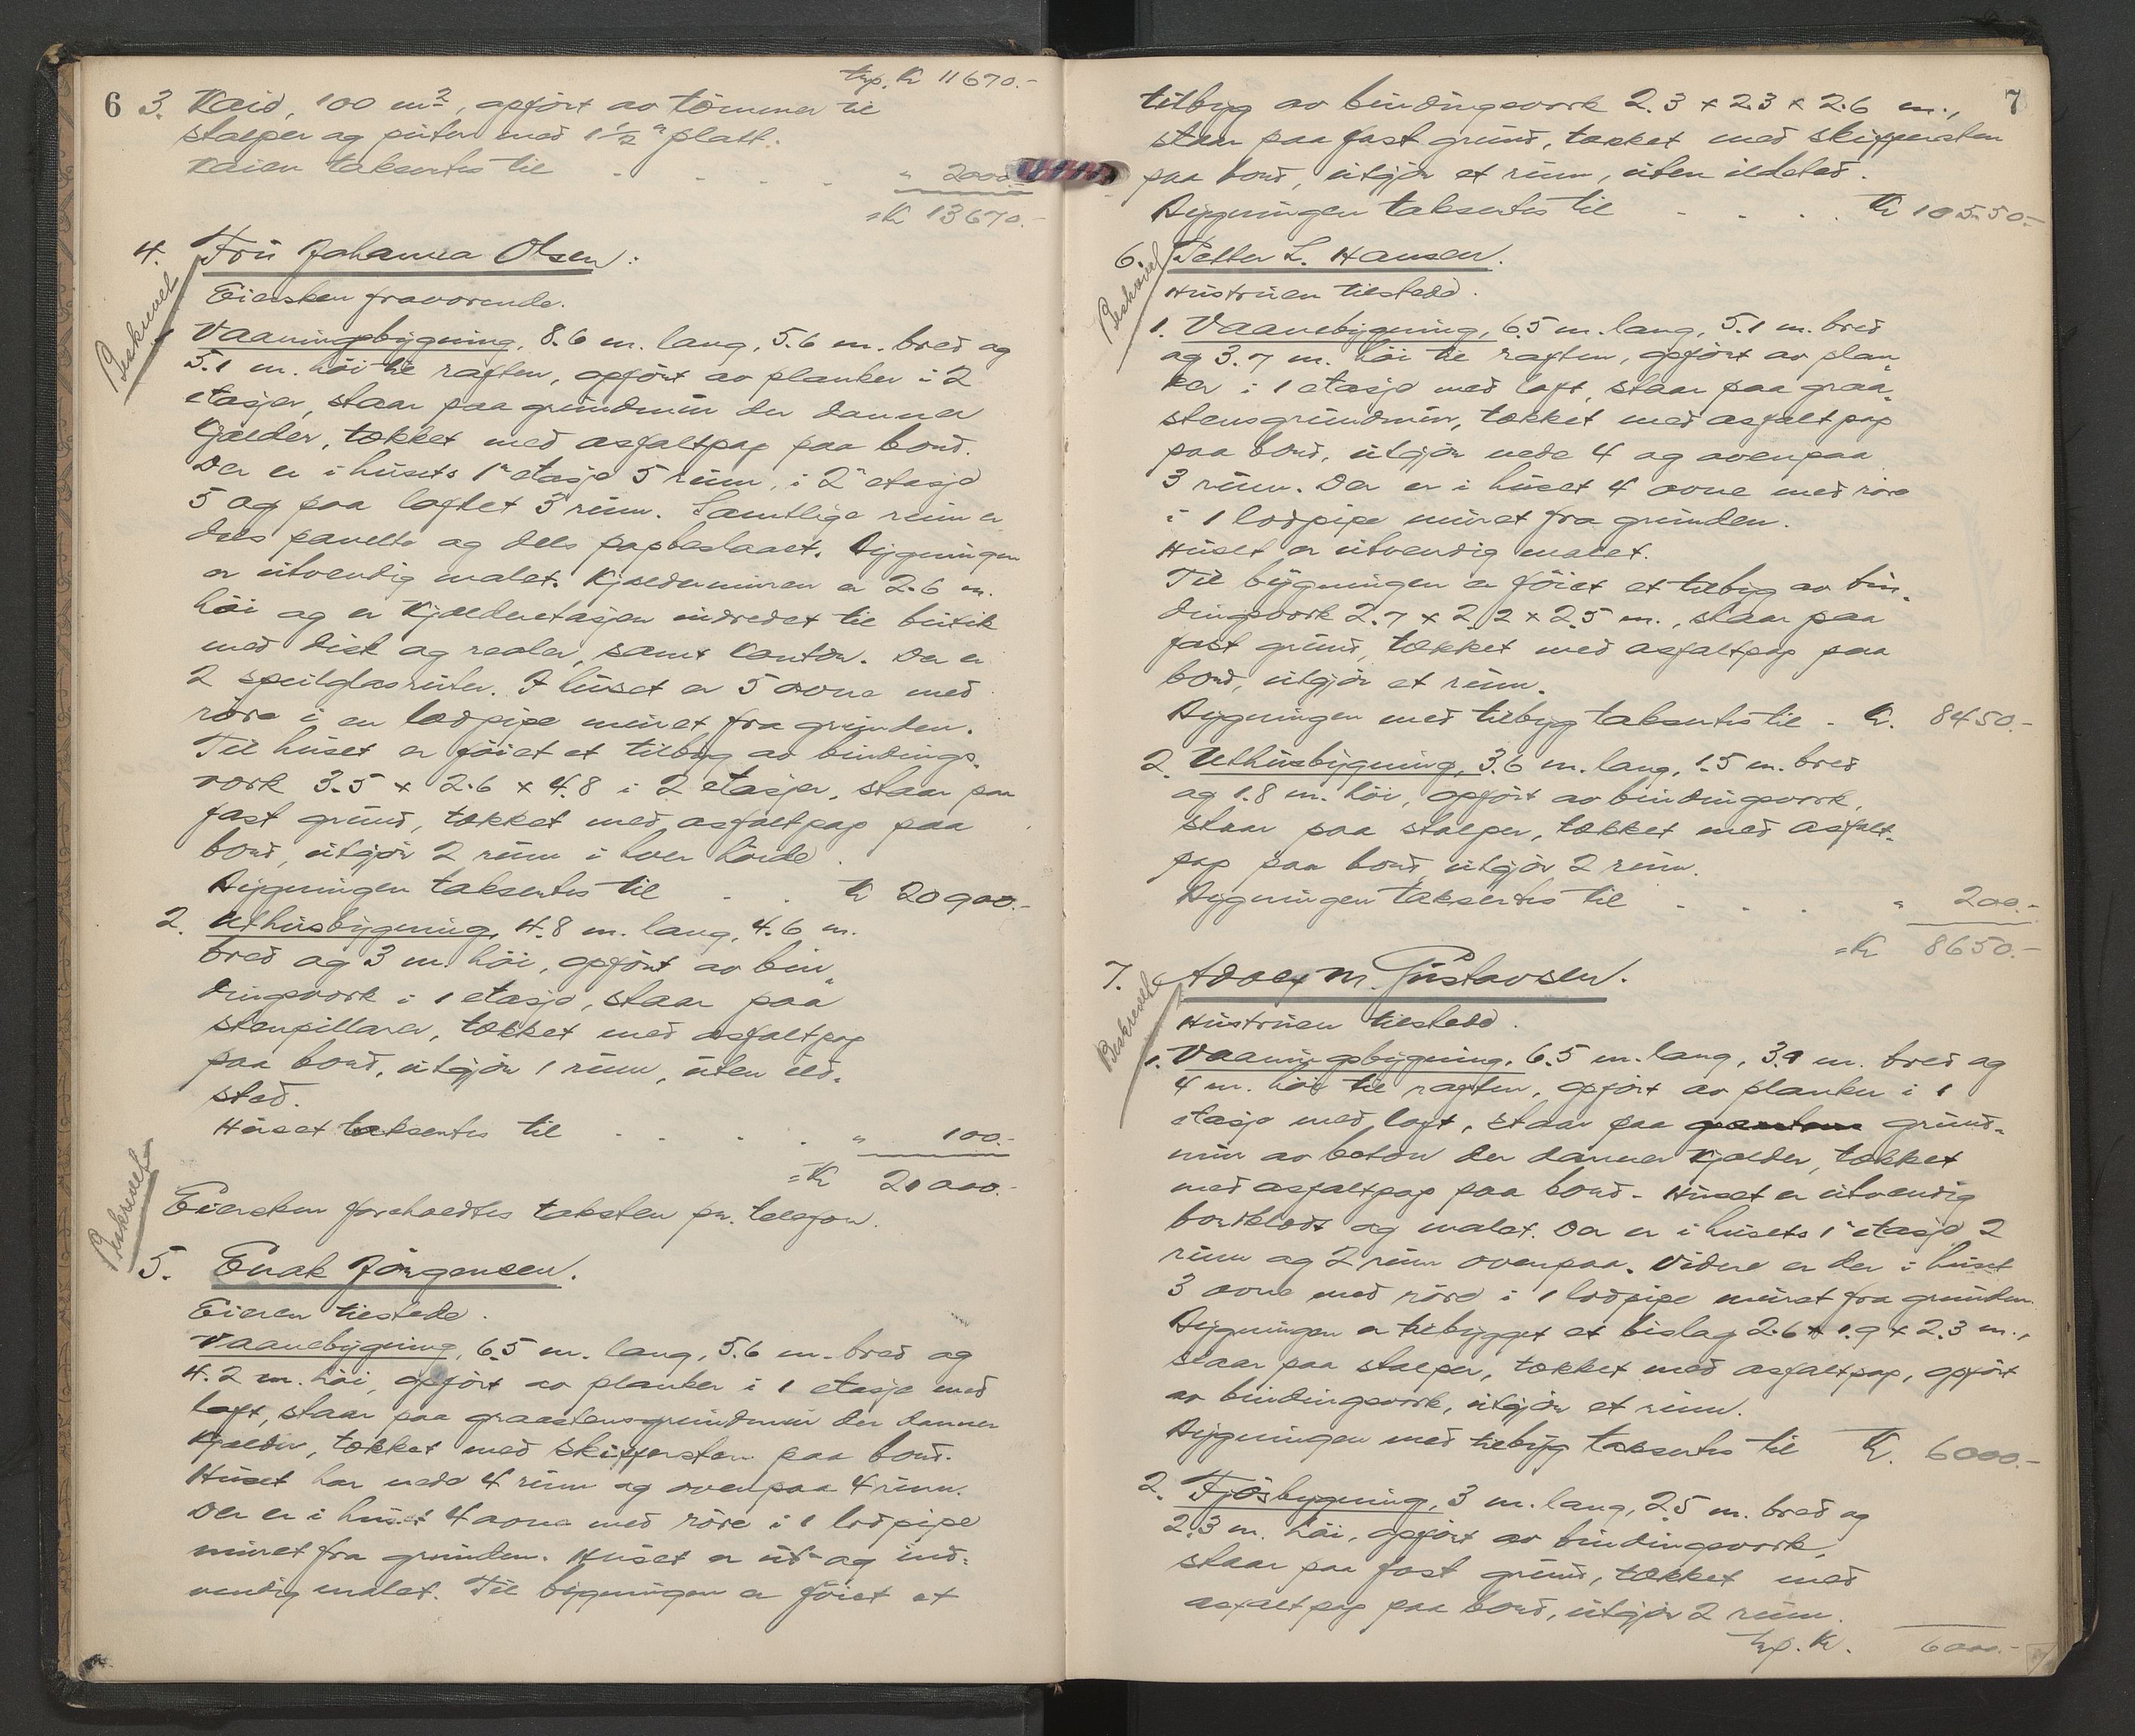 6
trp. Kr 11670.-
3. Kaid, 100 m², opfört av tömmer til
stolper og puter med 1½" platt.
Kaien taksertes til . . . . " 2000.-
=Kr 13670.-
4. Frü Johanna Olsen:
Beskrevet
Eiersken fraværende.
1. Vaaningsbygning, 8.6 m. lang, 5.6 m. bred og
5.1 m. höi til raften, opfört av planker i 2
etasjer, staar paa grundmür der danner
Kjælder, tækket med asfaltpap paa bord.
Der er i husets 1ᵉ etasje 5 rüm, i 2ᵉ etasje
5 og paa loftet 3 rüm. Samtlige rüm er
dels panelte og dels papbeslaaet. Bygningen
er utvendig malet. Kjældermüren er 2.6 m.
höi og er Kjælderetasjen indredet til bütik
med disk og reoler, samt Kontor. Der er
2 speilglasrüter. I hüset er 5 ovne med
röre i en lodpipe müret fra grunden.
Til hüset er föiet et tilbyg av bindings-
verk 3.5 x 2.6 x 4.8 i 2 etasjer, staar paa
fast grund, tækket med asfaltpap paa
bord, utgjör 2 rüm i hver höide.
Bygningen taksertes til . . Kr 20900.-
2. Uthüsbygning, 4.8 m. lang, 4.6 m.
bred og 3 m. höi, opfört av bin-
dingsverk i 1 etasje, staar paa
stenpillarer, tækket med asfaltpap
paa bord, utgjör 1 rüm, uten ild-
sted.
Hüset taksertes til . . . . " 100.-
=Kr 21000.-
Eiersken foreholdtes taksten pr. telefon.
Beskrevet
5. Enok Jörgensen.
Eieren tilstede.
Vaanebygning, 6.5 m. lang, 5.6 m. bred og
4.2 m. höi, opfört av planker i 1 etasje med
loft, staar paa graastensgrundmür der danner
Kjælder, tækket med skifersten paa bord.
Hüset har nede 4 rüm og ovenpaa 4 rüm.
Der er i hüset 4 ovne med röre i 1 lodpipe
müret fra grunden. Hüset er ut- og ind-
vendig malet. Til bygningen er föiet et
7
tilbyg av bindingsverk 2.3 x 2.3 x 2.6 m.,
staar paa fast grund, tækket med skifersten
paa bord, utgjör et rüm, uten ildsted.
Bygningen taksertes til . . . . Kr 10550.-
6. Petter L. Hansen.
Beskrevet
Hüstrüen tilstede.
1. Vaanebygning, 6.5 m. lang, 5.1 m. bred
og 3.7 m. höi til raften, opfört av plan-
ker i 1 etasje med loft, staar paa graa-
stensgrundmür, tækket med asfaltpap
paa bord, utgjör nede 4 og ovenpaa
3 rüm. Der er i hüset 4 ovne med röre
i 1 lodpipe müret fra grunden.
Hüset er utvendig malet.
Til bygningen er föiet et tilbyg av bin-
dingsverk 2.7 x 2.2 x 2.5 m., staar paa
fast grund, tækket med asfaltpap paa
bord, utgjör et rüm.
Bygningen med tilbyg taksertes til . Kr. 8450.-
2. Uthüsbygning, 3.6 m. lang, 1.5 m. bred
og 1.8 m. höi, opfört av bindingsverk,
staar paa stolper, tækket med asfalt-
pap paa bord, utgjör 2 rüm.
Bygningen taksertes til . . . " 200.-
=Kr 8650.-
7. Adolf M. Güstavsen.
Beskrevet
Hüstrüen tilstede.
1. Vaaningsbygning, 6.5 m. lang, 3.9 m. bred og
4 m. höi til raften, opfört av planker i 1
etasje med loft, staar paa grund-
mür av beton der danner Kjælder, tækket
med asfaltpap paa bord. Hüset er utvendig
bordklædt og malet. Der er i hüsets 1ᵉ etasje 2
rüm og 2 rüm ovenpaa. Videre er der i hüset
3 ovne med röre i 1 lodpipe müret fra grunden.
Bygningen er tilbygget et bislag 2.6 x 1.9 x 2.3 m.,
staar paa stolper, tækket med asfaltpap, opfört
av bindingsverk, utgjör et rüm.
Bygningen med tilbyg taksertes til Kr. 6000.-
2. Fjösbygning, 3 m. lang, 2.5 m. bred og
2.3 m. höi, opfört av bindingsverk,
staar paa fast grund, tækket med
asfaltpap paa bord, utgjör 2 rüm.
trp. Kr. 6000.-